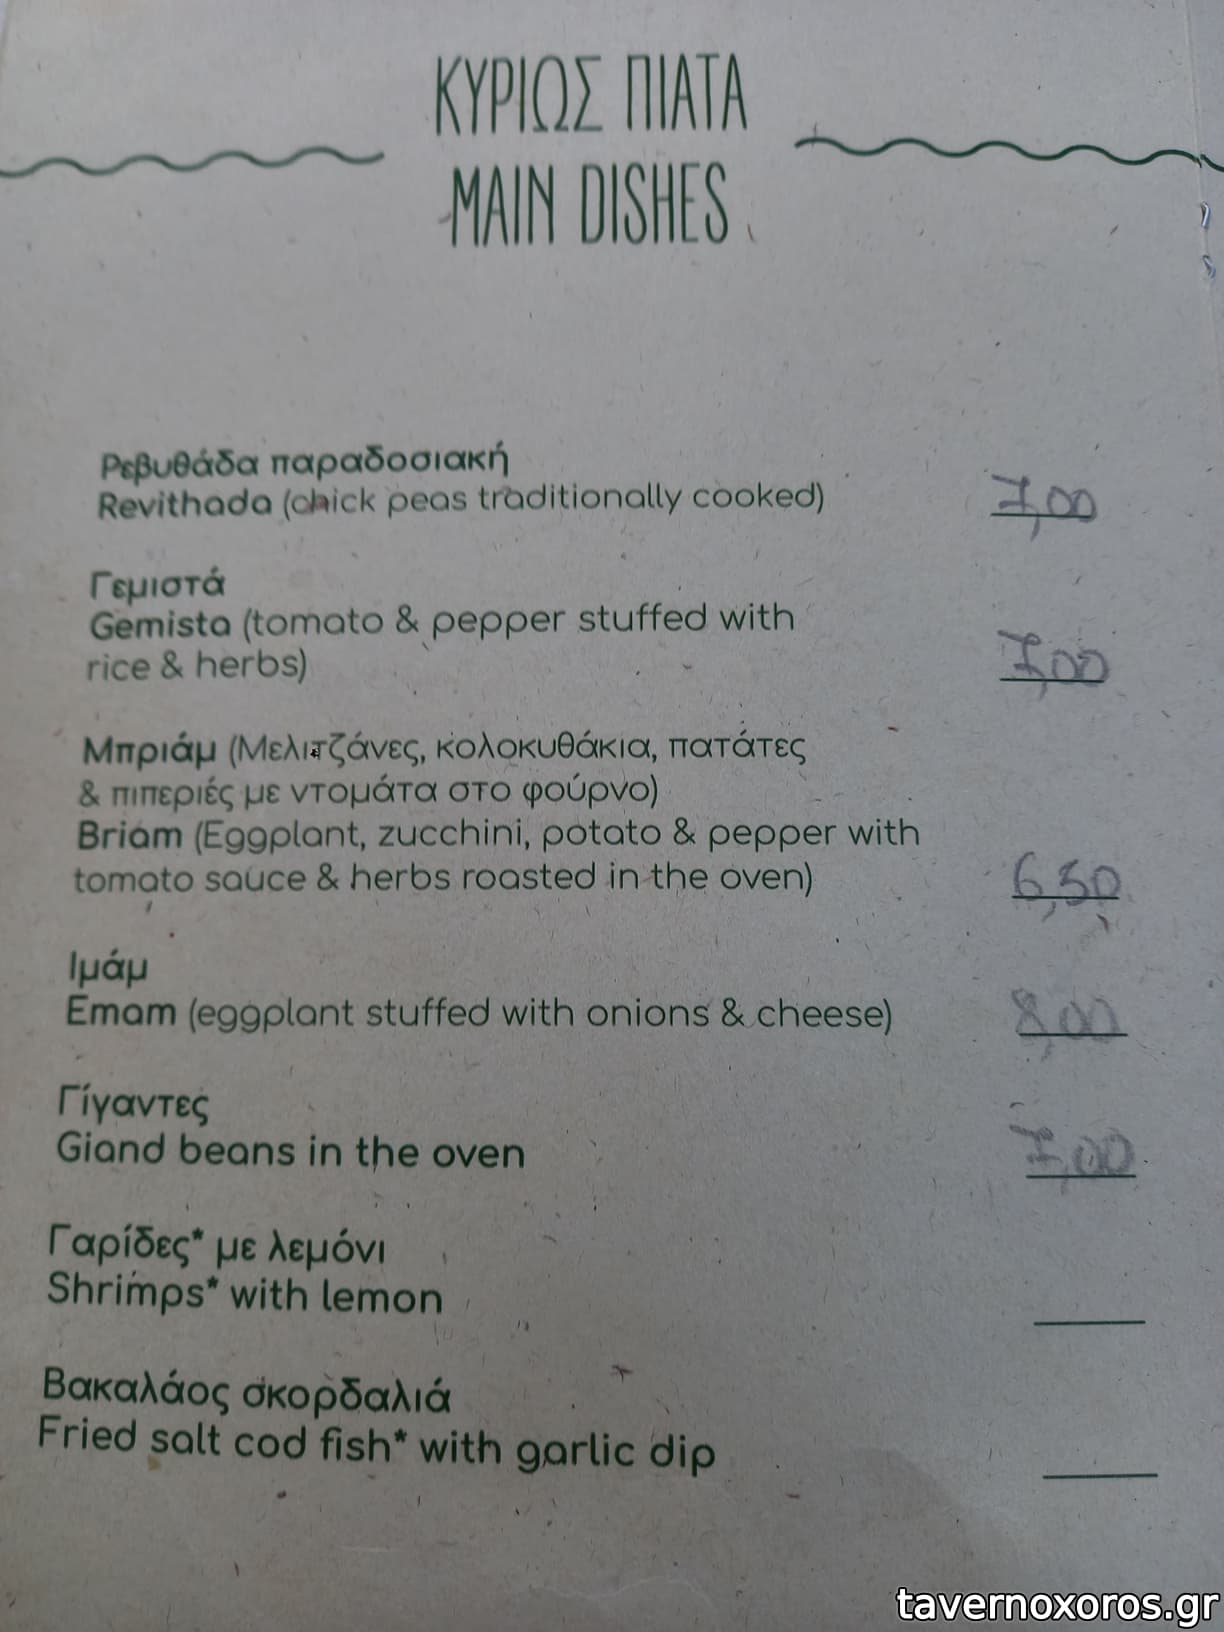 ΚΥΡΙΩΣ ΠΙΑΤΑ
MAIN DISHES
Ρεβυθάδα παραδοσιακή
Revithada (chick peas traditionally cooked) 7,00
Γεμιστά
Gemista (tomato & pepper stuffed with
rice & herbs) 7,00
Μπριάμ (Μελιτζάνες, κολοκυθάκια, πατάτες
& πιπεριές με ντομάτα στο φούρνο)
Briam (Eggplant, zucchini, potato & pepper with
tomato sauce & herbs roasted in the oven) 6,50
Ιμάμ
Emam (eggplant stuffed with onions & cheese) 8,00
Γίγαντες
Giand beans in the oven 7,00
Γαρίδες* με λεμόνι
Shrimps* with lemon
Βακαλάος σκορδαλιά
Fried salt cod fish* with garlic dip
tavernoxoros.gr